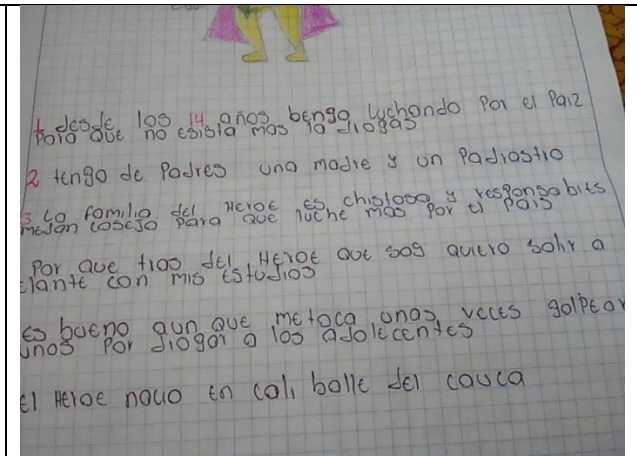 1 desde los 14 años bengo luchando Por el Paiz
Para que no esista mas la drogas
2 tengo de Padres una madre y un Padrastro
3 La familia del Heroe es chistosa y responsables
me dan cosejo para que luche mas Por el Pais
Por que tras del Heroe que soy quiero salir a
elante con mis estudios
es bueno aun que me toca unas veces golpear
unos Por drogar a los adolecentes
El Heroe nacio en cali balle del cauca